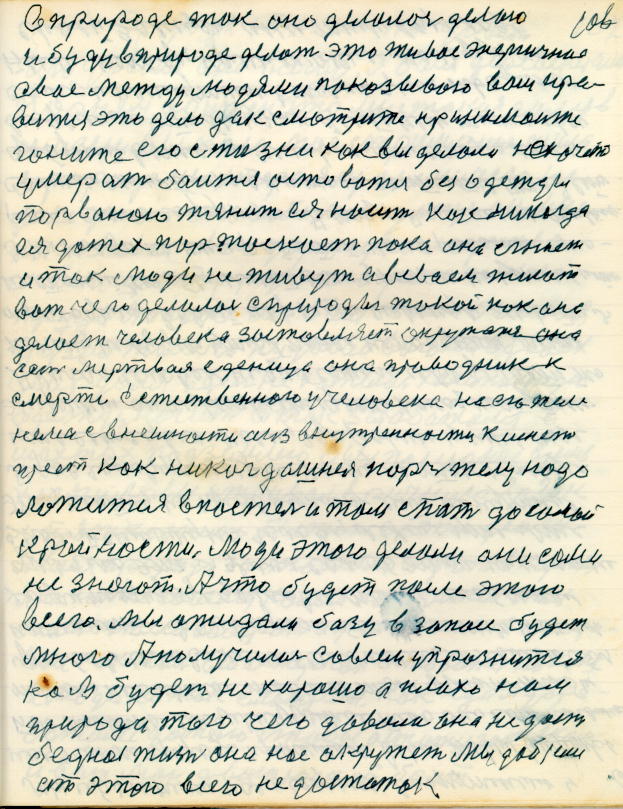 в природе так оно делалос делаю
и буду в природе делат это живое энергичное
свое между людями показываю вам нра-
вится это дело дак смотрите принимаите
гоните его с жизни как вы делали не хочете
умерат баитися оставатся без одежды
порваною тянитися носит как никогда
ся до тех пор таскает пока она
и так люди не живут а
вот чего делалос с природы такой как она
делает человека заставляет окружает она
сат мертвая еденица она проводник к
смерти естественного у человека на
нема с внешности а из внутренности кишит
прет как никогдашнея пора телу надо
ложится в постел и там спат до самой
крайности. Люди этого делали они сами
не знают. А что будет после этого
всего. Мы ожидали базу в запасе будет
много А получилос совсем упразнится
нам будет не хорошо а плохо нам
природа того чего давала она не даст
бедная жизн она нас окружет Мы добем
ст этого всего недостаток